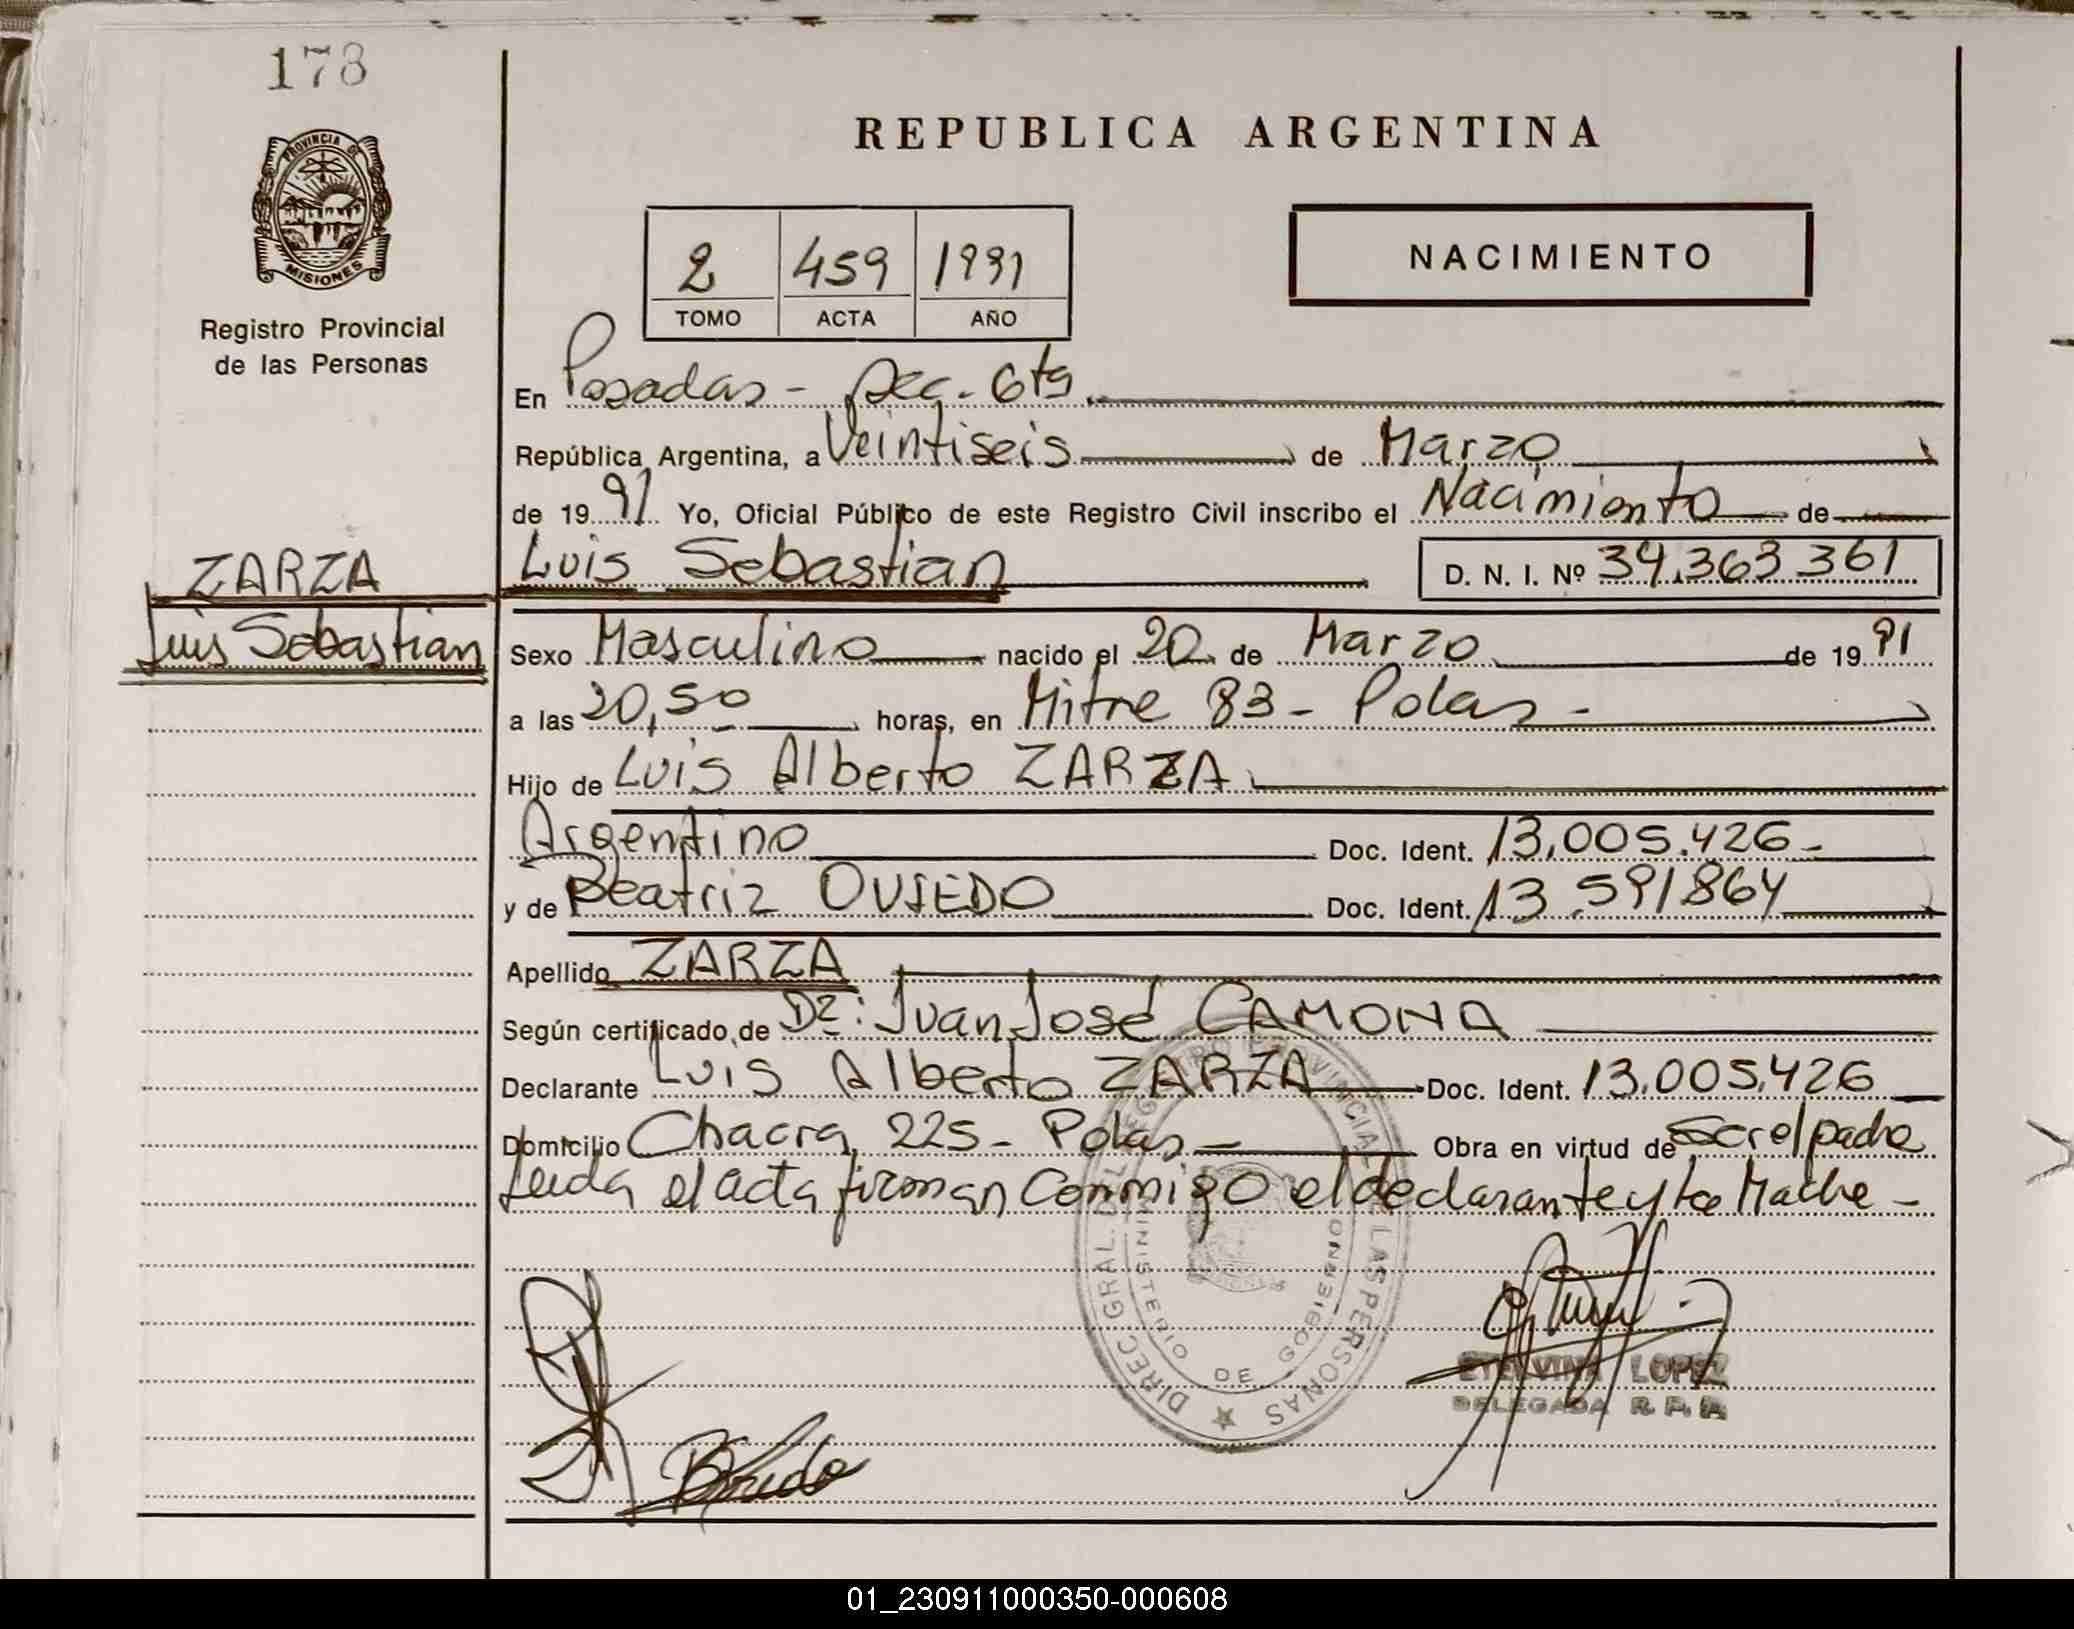 178
PROVINCIA DE
MISIONES
Registro Provincial
de las Personas
REPUBLICA ARGENTINA
2 459 1991
TOMO ACTA AÑO
NACIMIENTO
En Posadas - Sec. 6ta
República Argentina, a Veintiseis de Marzo
de 1991 Yo, Oficial Público de este Registro Civil inscribo el Nacimiento de
ZARZA
Luis Sebastian
Luis Sebastian D. N. I. Nº 34.363 361
Sexo Masculino nacido el 20 de Marzo de 1991
a las 20,50 horas, en Mitre 83 - Pdas -
Hijo de Luis Alberto ZARZA
Argentino Doc. Ident. 13.005.426 -
y de Beatriz OVIEDO Doc. Ident. 13.591864
Apellido ZARZA
Según certificado de Dr: Juan José CAMONA
Declarante Luis Alberto ZARZA Doc. Ident. 13.005.426
Domicilio Chacra 225 - Pdas - Obra en virtud de ser el padre
Leida el acta firman Conmigo el declarante y la Madre -
DIREC. GRAL. DEL REGISTRO PROVINCIAL DE LAS PERSONAS
MINISTERIO DE GOBIERNO
ETELVINA LOPEZ
DELEGADA R. P. P.
01_230911000350-000608